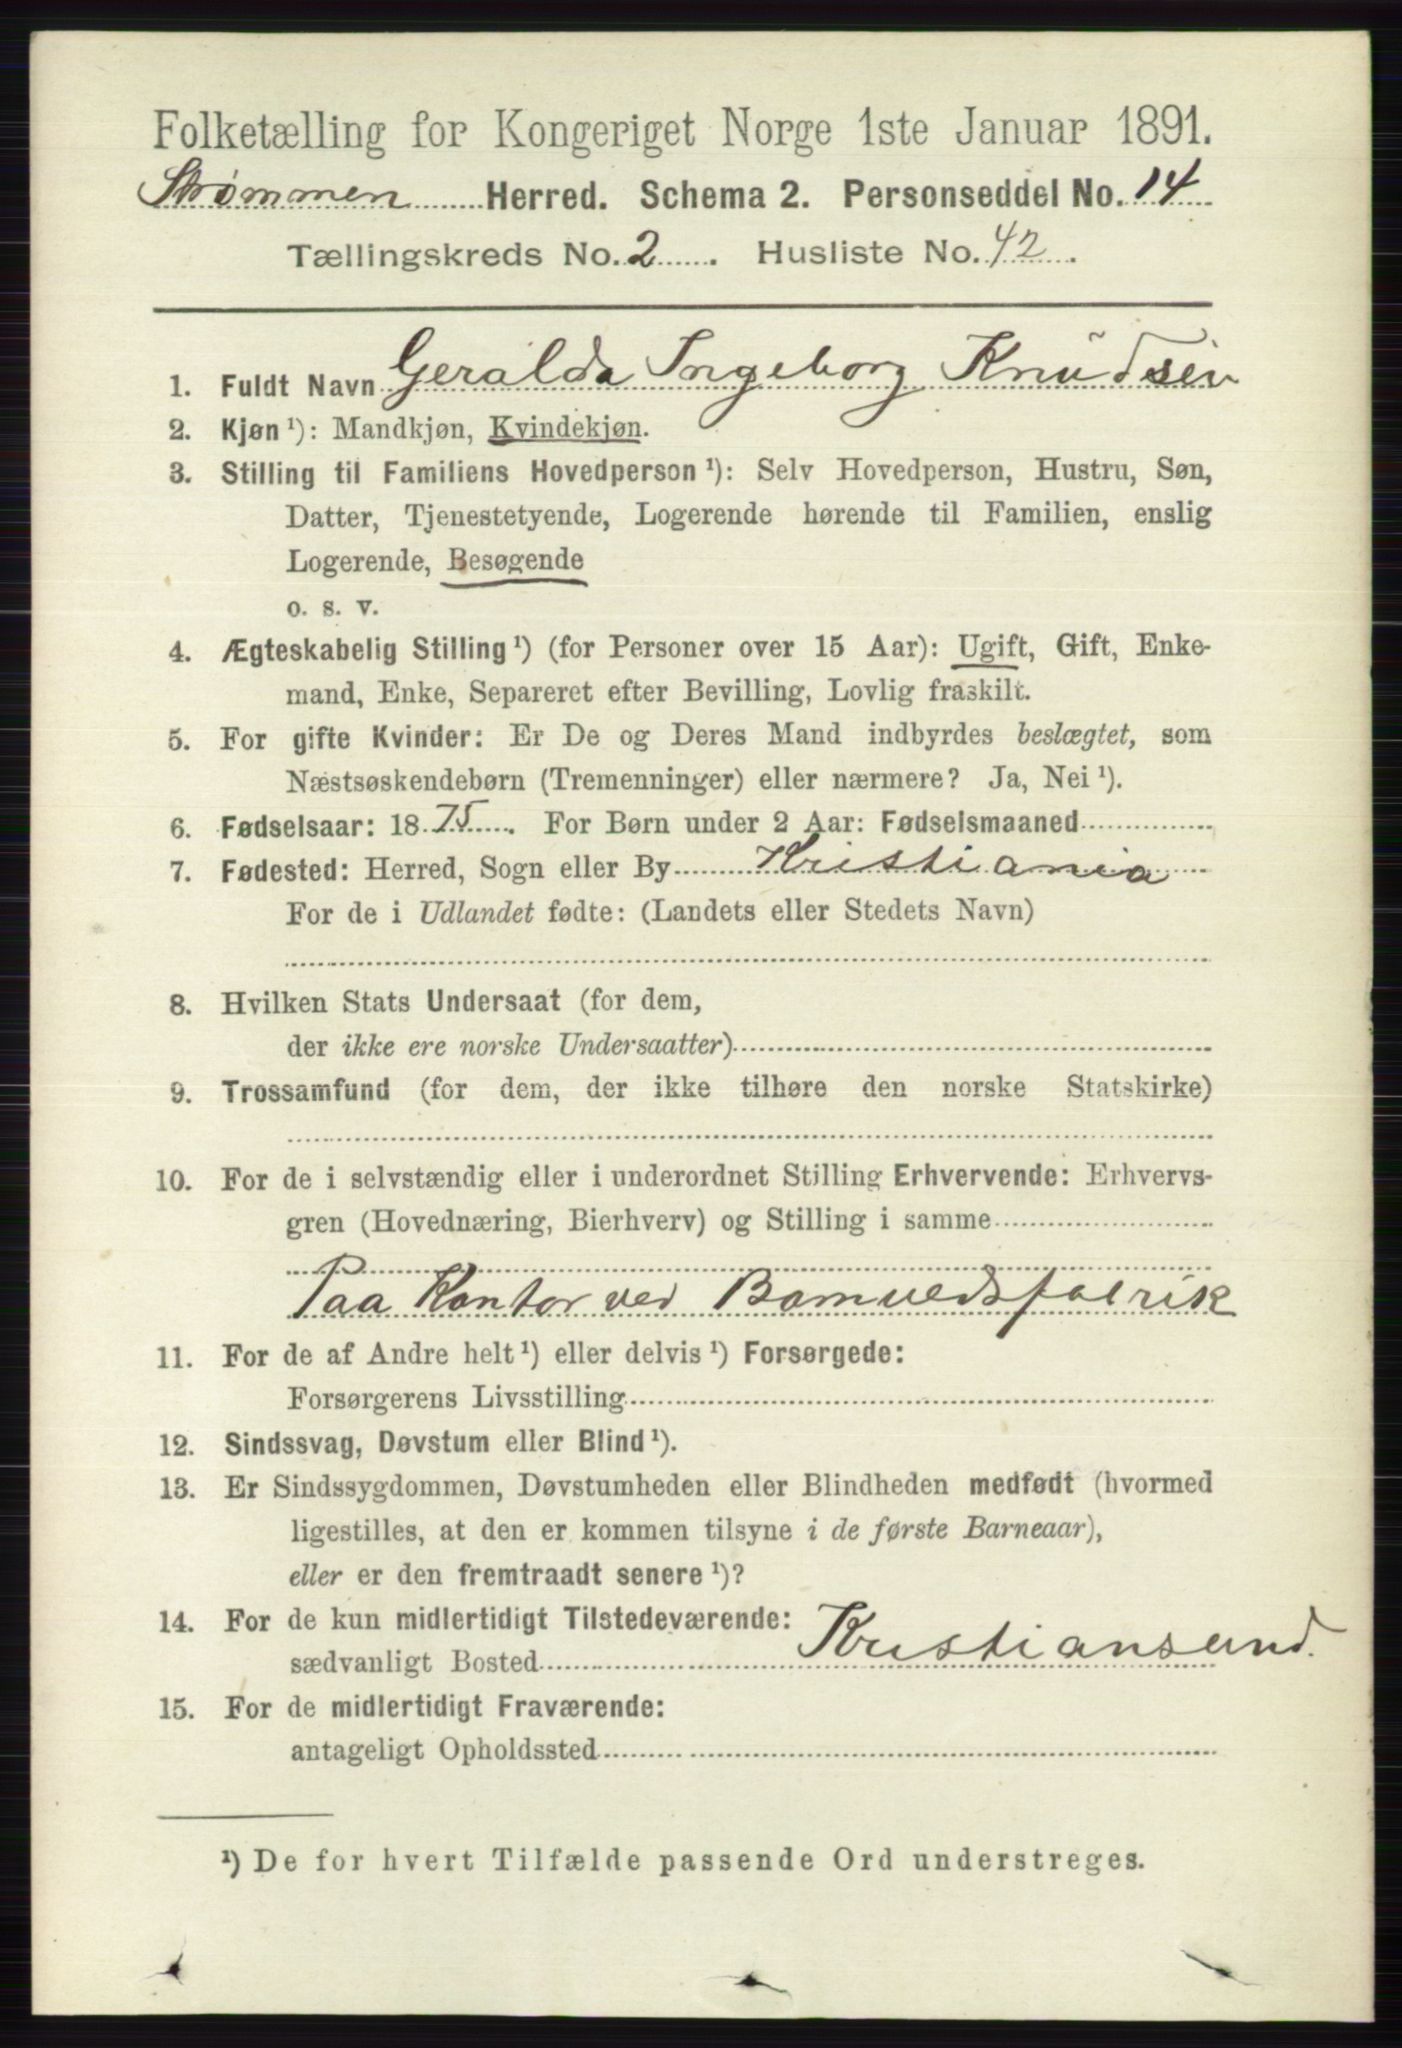 Folketælling for Kongeriget Norge 1ste Januar 1891.
Strømmen Herred. Schema 2. Personseddel No. 14
Tællingskreds No. 2. Husliste No. 42.
1. Fuldt Navn Geralda Ingeborg Knudsen
2. Kjøn ¹): Mandkjøn, Kvindekjøn.
3. Stilling til Familiens Hovedperson ¹): Selv Hovedperson, Hustru, Søn,
Datter, Tjenestetyende, Logerende hørende til Familien, enslig
Logerende, Besøgende
o. s. v.
4. Ægteskabelig Stilling ¹) (for Personer over 15 Aar): Ugift, Gift, Enke-
mand, Enke, Separeret efter Bevilling, Lovlig fraskilt.
5. For gifte Kvinder: Er De og Deres Mand indbyrdes beslægtet, som
Næstsøskendebørn (Tremenninger) eller nærmere? Ja, Nei ¹).
6. Fødselsaar: 1875. For Børn under 2 Aar: Fødselsmaaned
7. Fødested: Herred, Sogn eller By Kristiania
For de i Udlandet fødte: (Landets eller Stedets Navn)
8. Hvilken Stats Undersaat (for dem,
der ikke ere norske Undersaatter)
9. Trossamfund (for dem, der ikke tilhøre den norske Statskirke)
10. For de i selvstændig eller i underordnet Stilling Erhvervende: Erhvervs-
gren (Hovednæring, Bierhverv) og Stilling i samme
Paa Kontor ved Bomuldsfabrik
11. For de af Andre helt ¹) eller delvis ¹) Forsørgede:
Forsørgerens Livsstilling
12. Sindssvag, Døvstum eller Blind ¹).
13. Er Sindssygdommen, Døvstumheden eller Blindheden medfødt (hvormed
ligestilles, at den er kommen tilsyne i de første Barneaar),
eller er den fremtraadt senere ¹)?
14. For de kun midlertidigt Tilstedeværende:
sædvanligt Bosted Kristiansund.
15. For de midlertidigt Fraværende:
antageligt Opholdssted
¹) De for hvert Tilfælde passende Ord understreges.